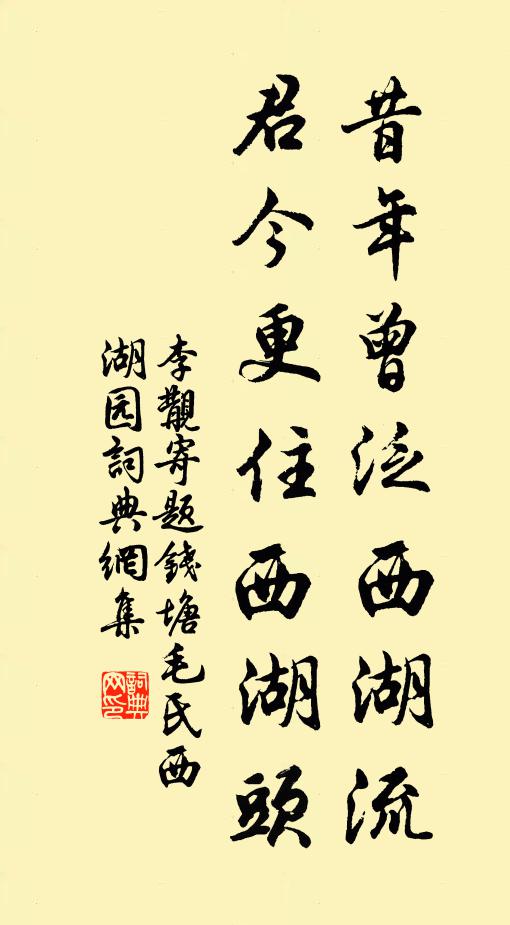 昔年曾泛西湖流
君今更住西湖頭
李覯寄题錢塘毛氏西
湖园詞典網集
詞典
网印